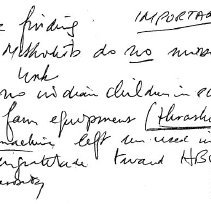 finding IMPORTA
Methodists do no
work
no indian children in
farm equipment (thrash
machine left unused
ingratitude toward HB